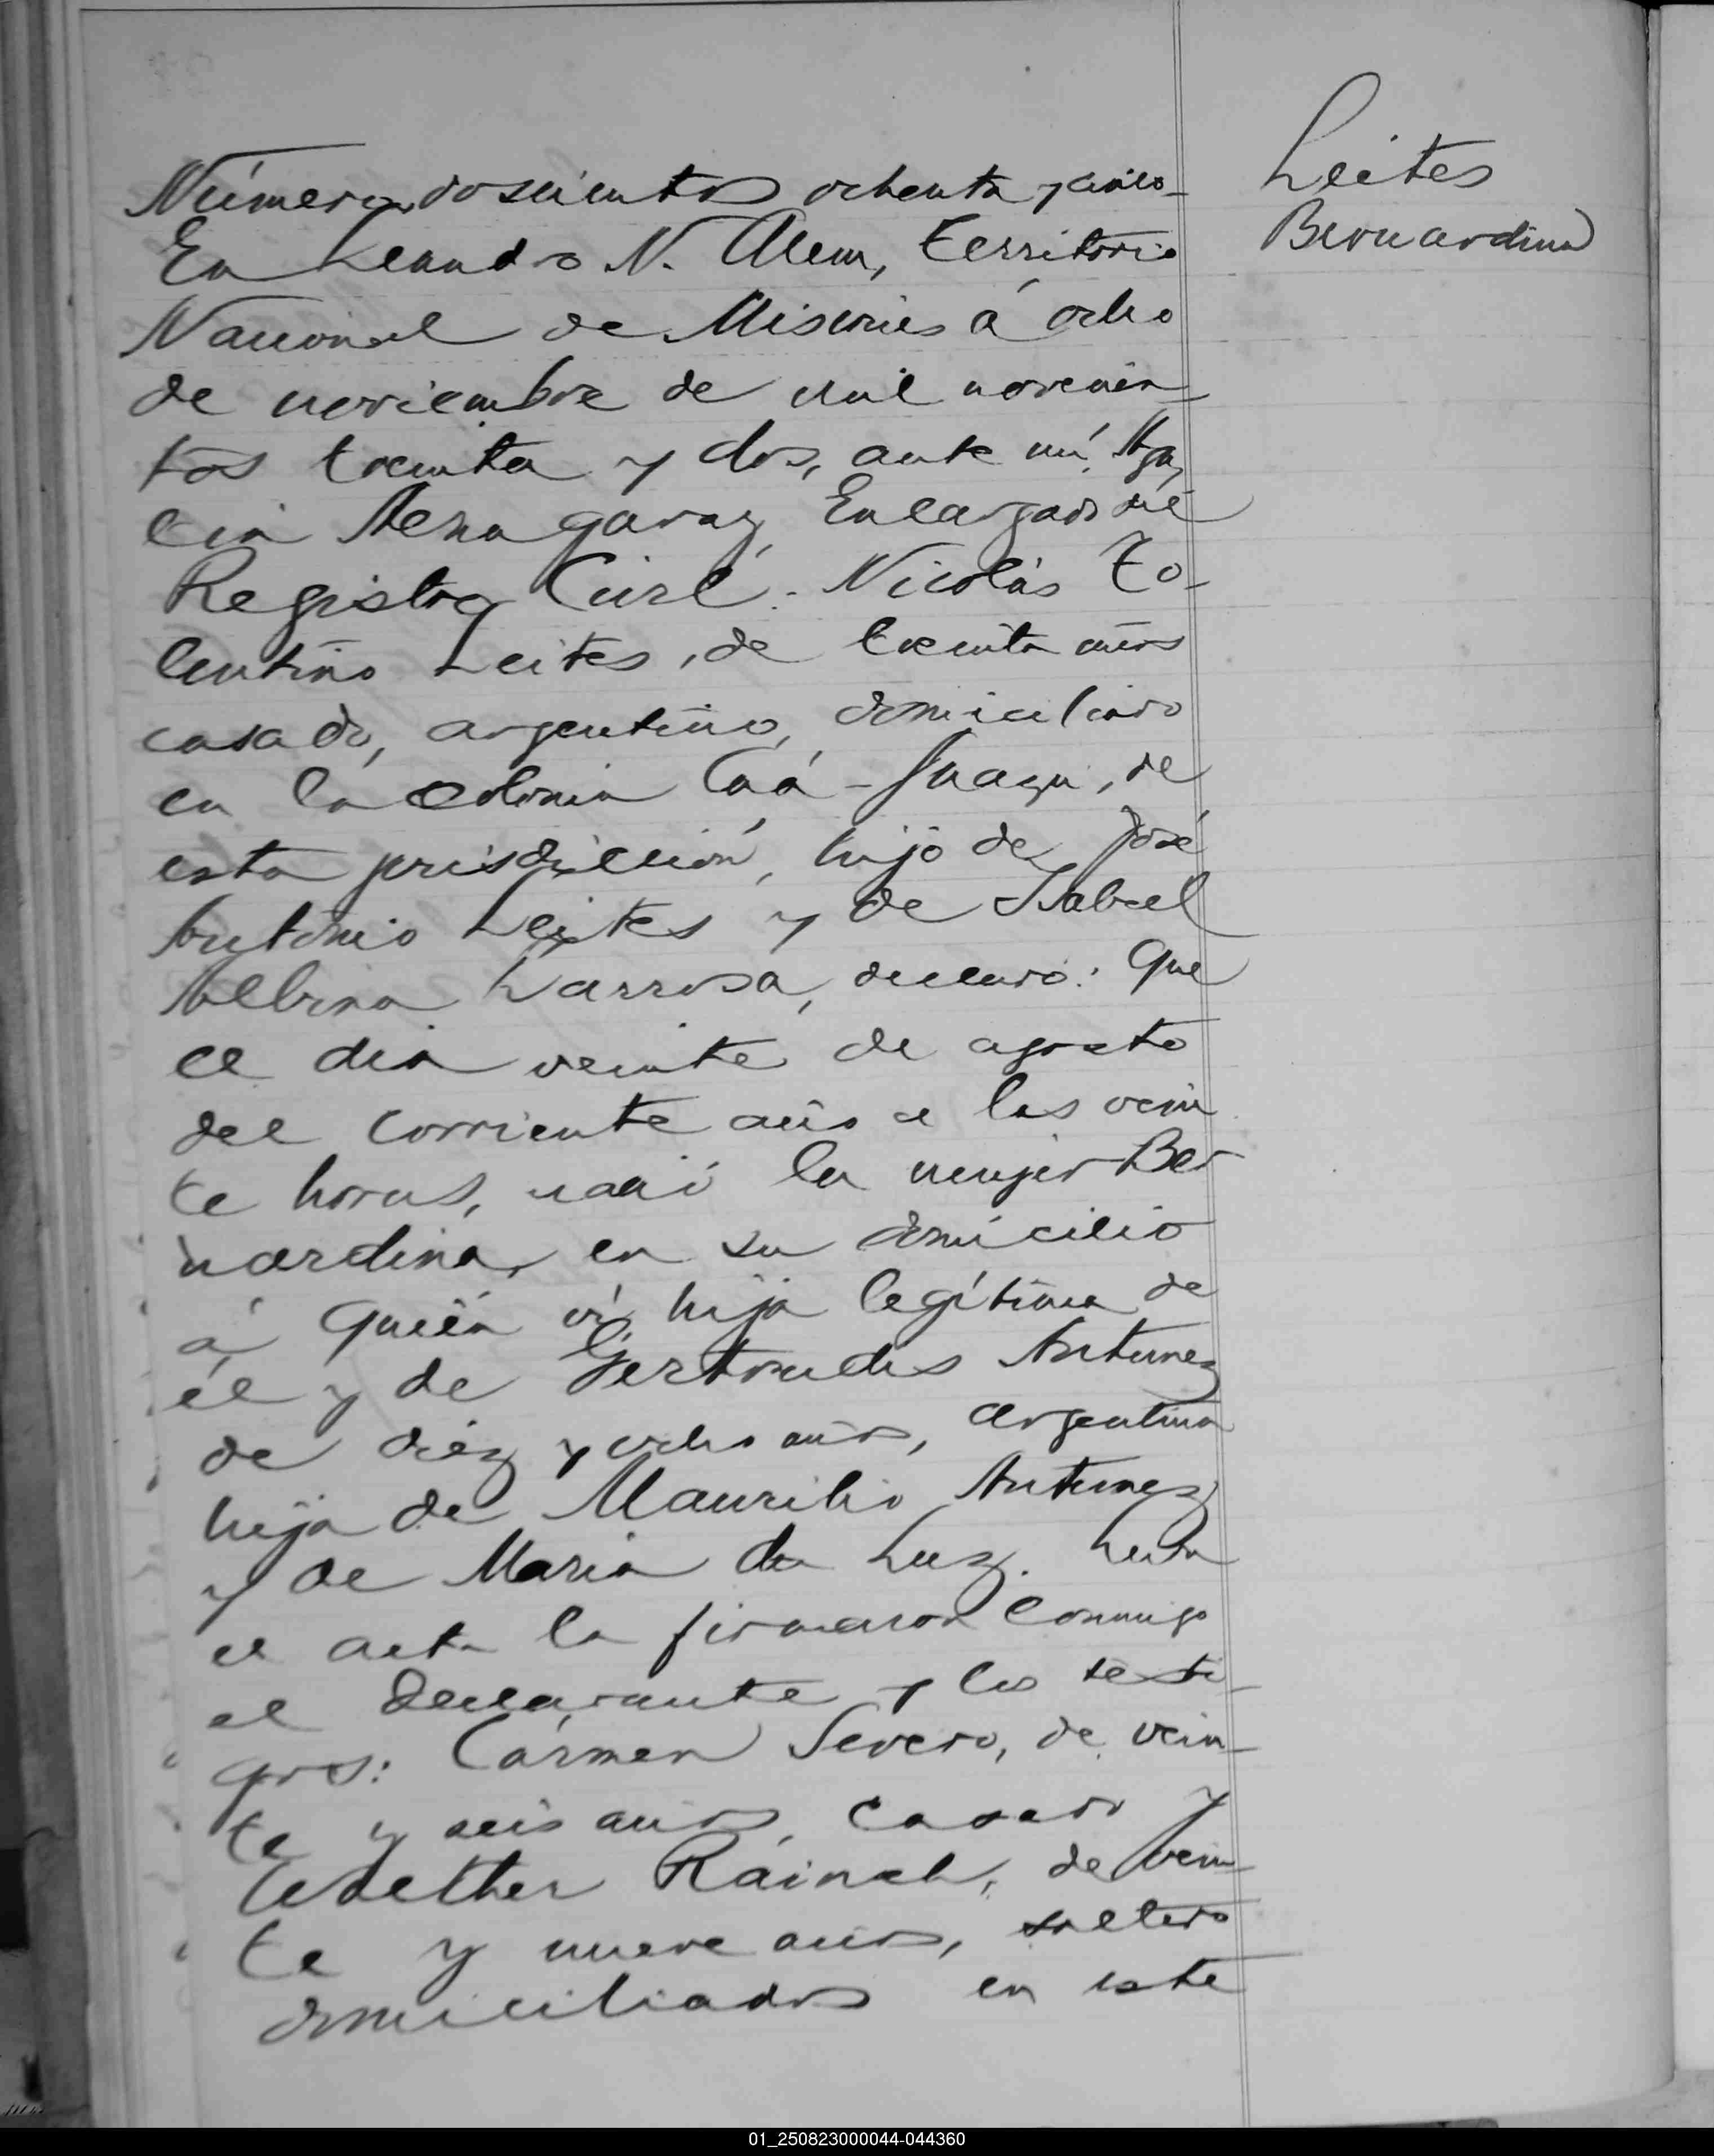 Leites
Bernardina
Número doscientos ochenta y cinco
En Leandro N. Alem, territorio
Nacional de Misiones á ocho
de noviembre de mil novecien-
tos treinta y dos, ante mí,
Garay, Encargado del
Registro Civil. Nicolás To-
lentino Leites, de treinta años
casado, argentino, domiciliado
en la colonia Caá-Guazú, de
esta jurisdicción, hijo de José
Antonio Leites y de Isabel
Albina Larrosa, declaró: Que
el dia veinte de agosto
del corriente año a las vein
te horas, nació la mujer Ber
nardina, en su domicilio
á quién ví, hija legítima de
él y de Gertrudes Antunez
de diéz y ocho años, argentina
hija de Maurilio Antunez
y de Maria da Luz. Leida
el acta la firmaron conmigo
el declarante y los testi-
gos: Cármen Severo, de vein-
te y seis años, casado y
Raineh, de vein-
te y nueve años, soltero
domiciliados en este
01_250823000044-044360